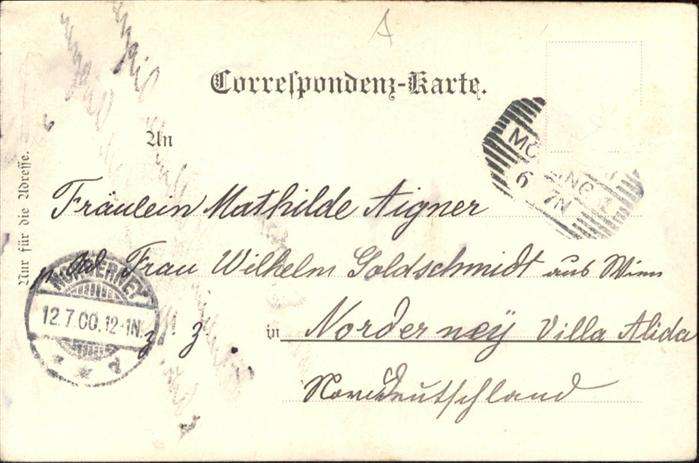 Correspondenz-Karte.
An
Nur für die Adresse.
Fräulein Mathilde Aigner
Frau Wilhelm Goldschmidt aus Wien
z. z in Norderney Villa Alida
Norddeutschland
NORDERNEY
12.7.00.12-1N.